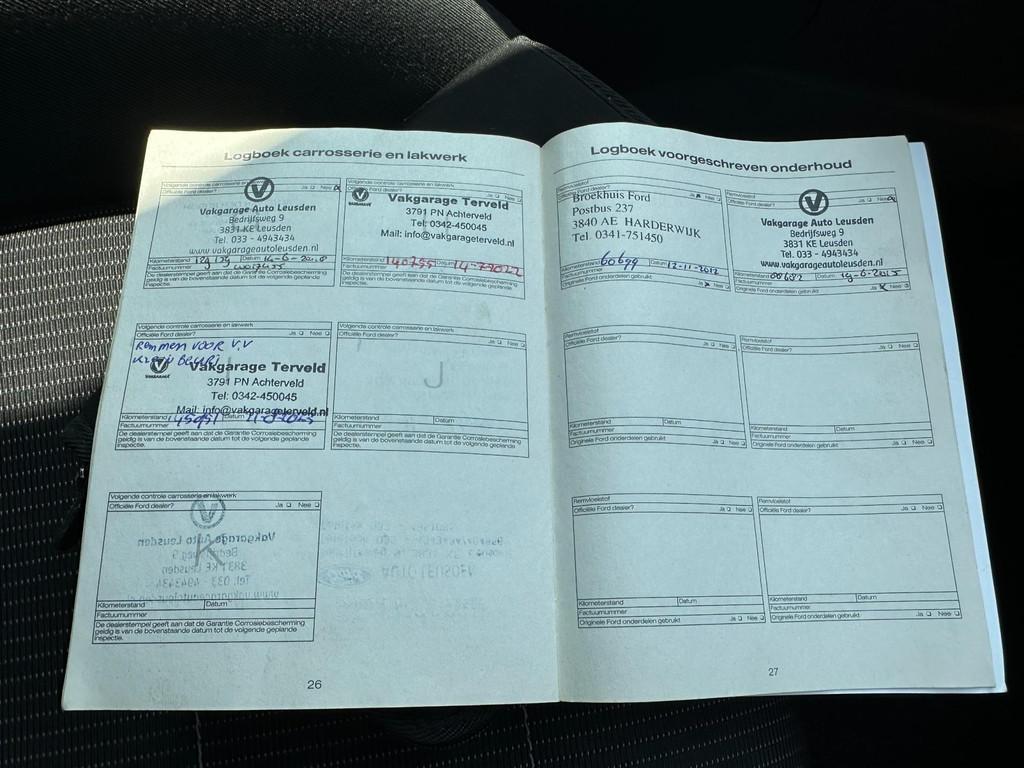 Logboek carrosserie en lakwerk
Volgende controle carrosserie en lakwerk
Officiële Ford dealer? Ja Nee
Vakgarage Auto Leusden
Bedrijfsweg 9
3831 KE Leusden
Tel. 033 - 4943434
www.vakgarageautoleusden.nl
Kilometerstand Datum 14-6-2018
Factuurnummer
De dealerstempel geeft aan dat de Garantie Corrosiebescherming
geldig is van de bovenstaande datum tot de volgende geplande
inspectie.
Volgende controle carrosserie en lakwerk
Officiële Ford dealer? Ja Nee
VAKGARAGE
Vakgarage Terveld
3791 PN Achterveld
Tel: 0342-450045
Mail: info@vakgarageterveld.nl
Kilometerstand 140755 Datum 14-7-2022
Factuurnummer
De dealerstempel geeft aan dat de Garantie Corrosiebescherming
geldig is van de bovenstaande datum tot de volgende geplande
inspectie.
Volgende controle carrosserie en lakwerk
Officiële Ford dealer? Ja Nee
Remmen VOOR V.V
VAKGARAGE
Vakgarage Terveld
3791 PN Achterveld
Tel: 0342-450045
Mail: info@vakgarageterveld.nl
Kilometerstand 145051 Datum
Factuurnummer
De dealerstempel geeft aan dat de Garantie Corrosiebescherming
geldig is van de bovenstaande datum tot de volgende geplande
inspectie.
Volgende controle carrosserie en lakwerk
Officiële Ford dealer? Ja Nee
Kilometerstand Datum
Factuurnummer
De dealerstempel geeft aan dat de Garantie Corrosiebescherming
geldig is van de bovenstaande datum tot de volgende geplande
inspectie.
Volgende controle carrosserie en lakwerk
Officiële Ford dealer? Ja Nee
Vakgarage Auto Leusden
Bedrijfsweg 9
3831 KE Leusden
Tel. 033 - 4943434
www.vakgarageautoleusden.nl
Kilometerstand Datum
Factuurnummer
De dealerstempel geeft aan dat de Garantie Corrosiebescherming
geldig is van de bovenstaande datum tot de volgende geplande
inspectie.
26
Logboek voorgeschreven onderhoud
Remvloeistof
Officiële Ford dealer? Ja Nee
Broekhuis Ford
Postbus 237
3840 AE HARDERWIJK
Tel. 0341-751450
Kilometerstand 60699 Datum 12-11-2012
Factuurnummer
Originele Ford onderdelen gebruikt Ja Nee
Remvloeistof
Officiële Ford dealer? Ja Nee
Vakgarage Auto Leusden
Bedrijfsweg 9
3831 KE Leusden
Tel. 033 - 4943434
www.vakgarageautoleusden.nl
Kilometerstand Datum 19-6-2015
Factuurnummer
Originele Ford onderdelen gebruikt Ja Nee
Remvloeistof
Officiële Ford dealer? Ja Nee
Kilometerstand Datum
Factuurnummer
Originele Ford onderdelen gebruikt Ja Nee
Remvloeistof
Officiële Ford dealer? Ja Nee
Kilometerstand Datum
Factuurnummer
Originele Ford onderdelen gebruikt Ja Nee
Remvloeistof
Officiële Ford dealer? Ja Nee
Kilometerstand Datum
Factuurnummer
Originele Ford onderdelen gebruikt Ja Nee
Remvloeistof
Officiële Ford dealer? Ja Nee
Kilometerstand Datum
Factuurnummer
Originele Ford onderdelen gebruikt Ja Nee
27